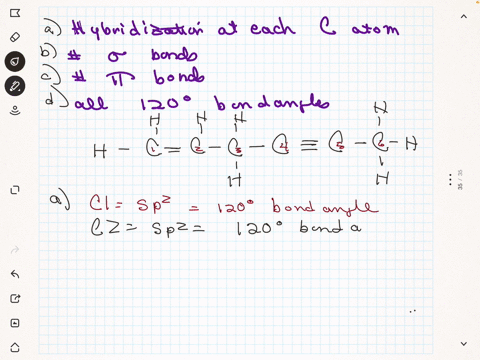 a) Hybridization at each C atom
b) # σ bonds
c) # π bonds
d) all 120° bond angles
H H H H
H - C1 = C2 - C3 - C4 ≡ C5 - C6 - H
H H
a) C1 = sp² = 120° bond angle
C2 = sp2 = 120° bond a
35 / 35